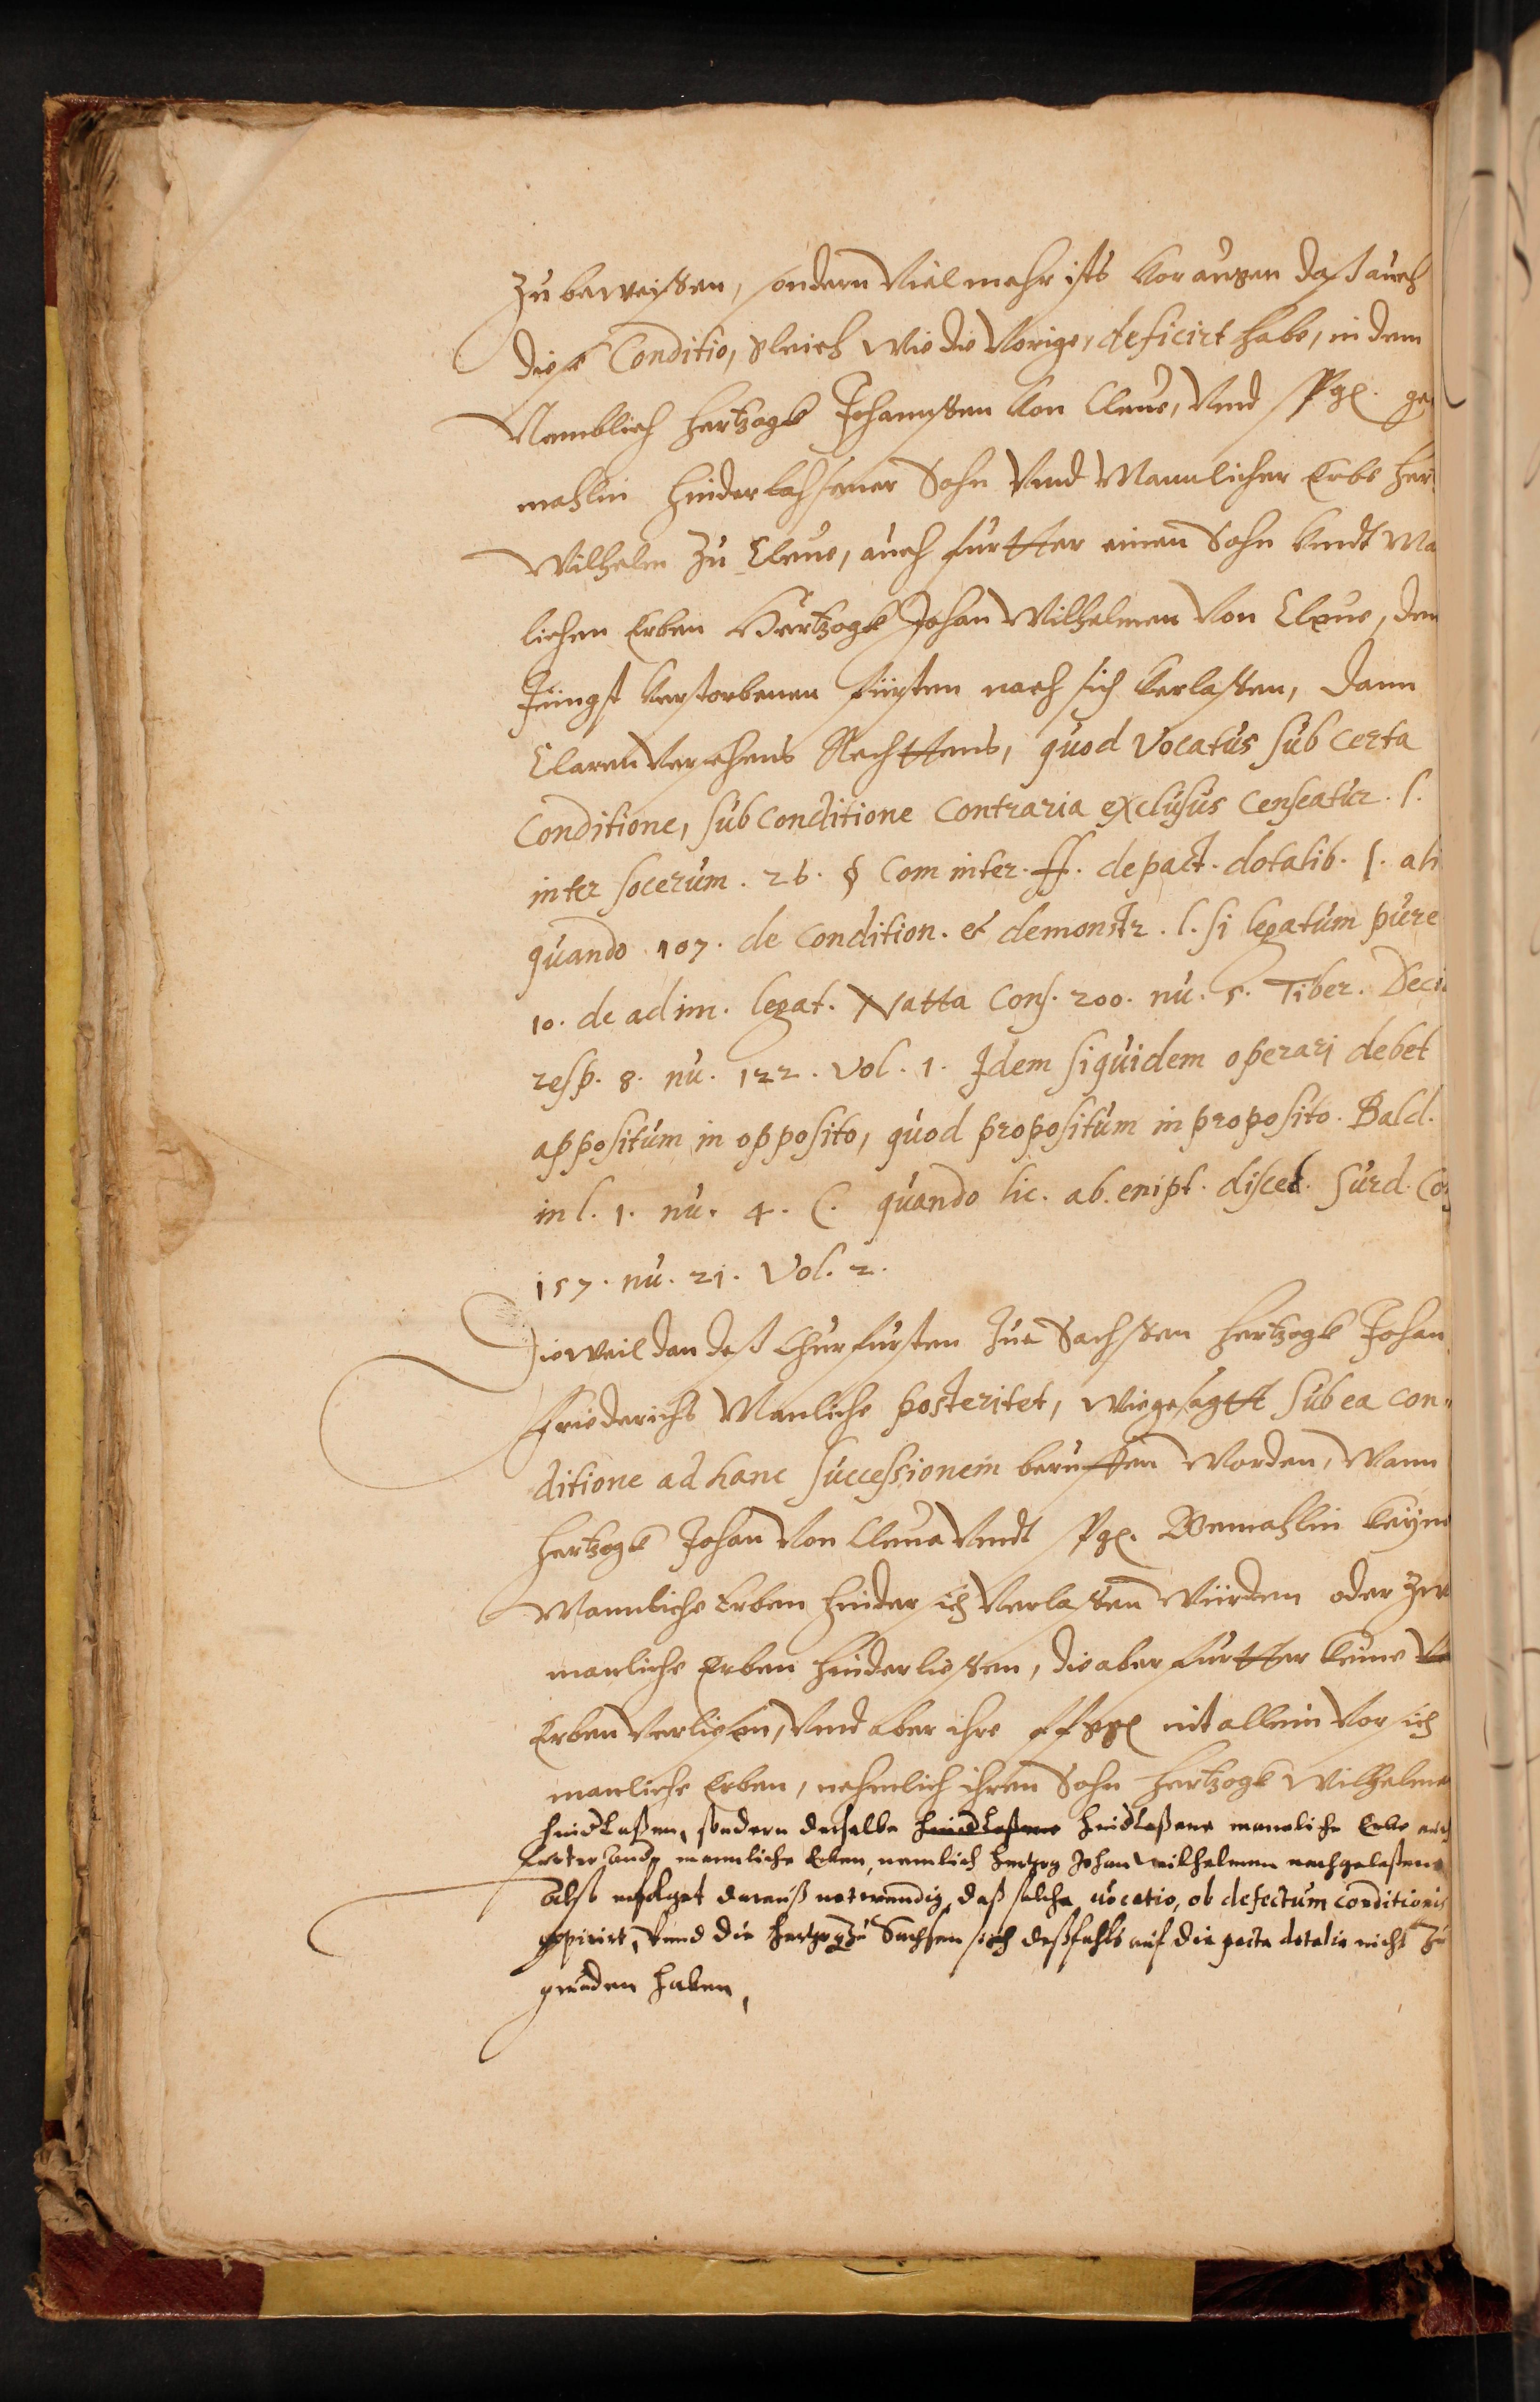 Zubeweißen, sondern Viel mehr ists Vor augen daß auch
diese Conditio, gleich wie die Vorige, deficirt habe, in dem
Nemblich Hertzogk Johanßen Von Cleue, Vnd ge
mahlin hinderlaßener Sohn Vnd Mannlicher Erbe Her
Wilhelm Zu Cleue, auch furtter einen Sohn Vndt Ma
lichen Erben Hertzogk Johan Wilhelmen Von Cleue, den
Jüngst Verstorbenen Fürsten nach sich Verlaßen, dann
Claren Versehens Rechttens, quod Vocatus sub certa
Conditione, sub conditione contraria exclusus censeatur. l.
inter socerum. 26. § Com inter. ff. de pact. dotalib. l. ali
quando 107. de condition. et demonstr. l. si legatum pure
10. de adim. legat. Natta Cons. 200. nu. 5. Tiber. Deci
resp. 8. nu. 122. Vol. 1. Idem siquidem operari debet
appositum in opposito, quod propositum in proposito. Bald.
in l. 1. nu. 4. C. quando lic. ab. enipt. disced. Surd. Co
157. nu. 21. Vol. 2.
Dieweil dan deß Churfursten Zue Sachßen Hertzogk Johan
Friederichs Manliche posteritet, wie gesagtt sub ea con-
ditione ad hanc successionem beruffen Worden, Wann
Hertzogk Johan Von Cleue Vndt Gemahlin keyne
Mannliche Erben hinder sich Verlaßen Würden oder Zwa
manliche Erben hinderließen, die aber furtter keine
Erben Verließen, Vnd aber ihre nit allein Vor sich
manliche Erben, nehmlich ihren Sohn Hertzogk Wilhelme
hindlaßen, sondern derselbe hindlaßene hindlaßene mannliche Erbe auch
mannliche Erben, nemlich Hertzog Johan Wilhelmen nachgelaßen
Alß erfolget darauß notwendig, daß solche vocatio, ob defectum conditionis
expirirt, Vnnd die Hertzog Zu Sachsen sich deßfahls auf die pacta dotalia nicht Zu
gründen haben,